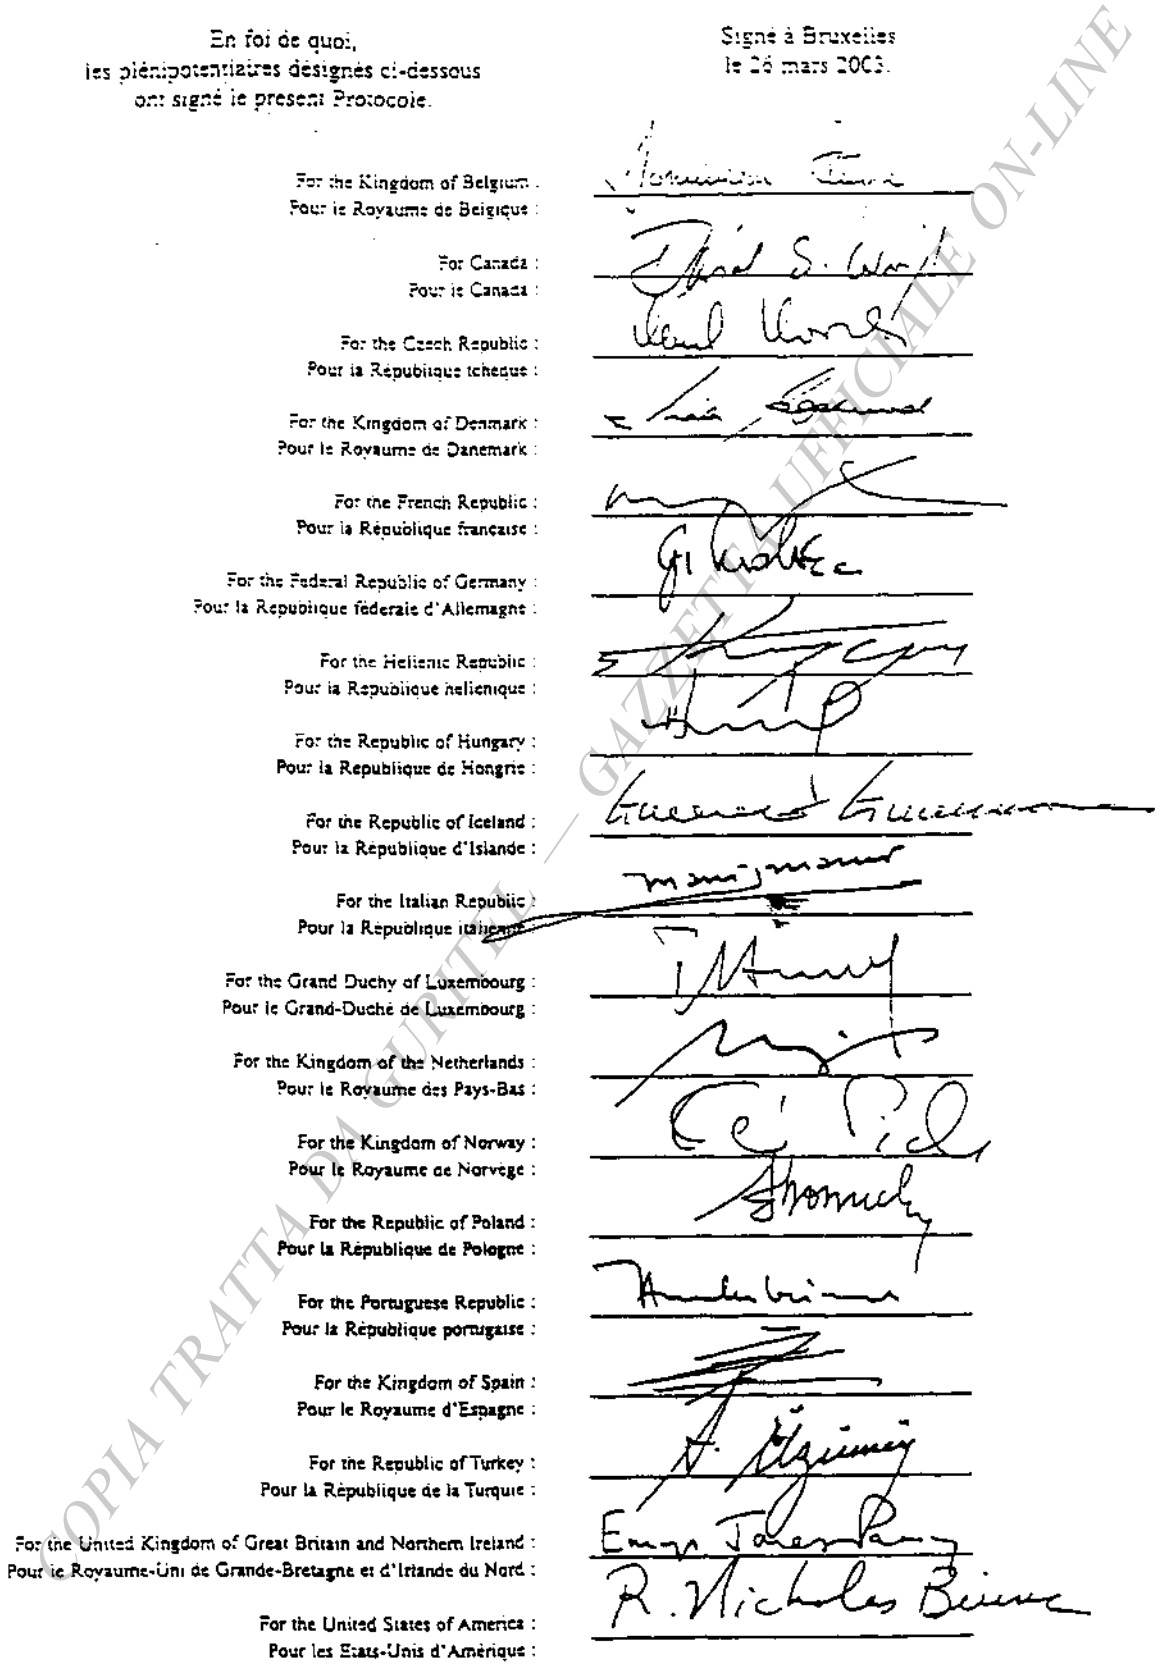 En foi de quoi,
les plénipotentiaires désignés ci-dessous
ont signé le present Protocole.
Signé à Bruxelles
le 26 mars 2003.
For the Kingdom of Belgium :
Pour le Royaume de Belgique :
For Canada :
Pour le Canada :
David S. Wright
For the Czech Republic :
Pour la République tchèque :
For the Kingdom of Denmark :
Pour le Royaume de Danemark :
For the French Republic :
Pour la République française :
For the Federal Republic of Germany :
Pour la Republique féderale d'Allemagne :
For the Hellenic Republic :
Pour la Republique hellenique :
For the Republic of Hungary :
Pour la Republique de Hongrie :
For the Republic of Iceland :
Pour la République d'Islande :
For the Italian Republic :
Pour la République italienne :
For the Grand Duchy of Luxembourg :
Pour le Grand-Duché de Luxembourg :
For the Kingdom of the Netherlands :
Pour le Royaume des Pays-Bas :
For the Kingdom of Norway :
Pour le Royaume de Norvège :
For the Republic of Poland :
Pour la République de Pologne :
For the Portuguese Republic :
Pour la République portugaise :
For the Kingdom of Spain :
Pour le Royaume d'Espagne :
For the Republic of Turkey :
Pour la République de la Turquie :
For the United Kingdom of Great Britain and Northern Ireland :
Pour le Royaume-Uni de Grande-Bretagne et d'Irlande du Nord :
Emyr Jones Parry
For the United States of America :
Pour les Etats-Unis d'Amérique :
R. Nicholas Burns
COPIA TRATTA DA GURITEL — GAZZETTA UFFICIALE ON-LINE